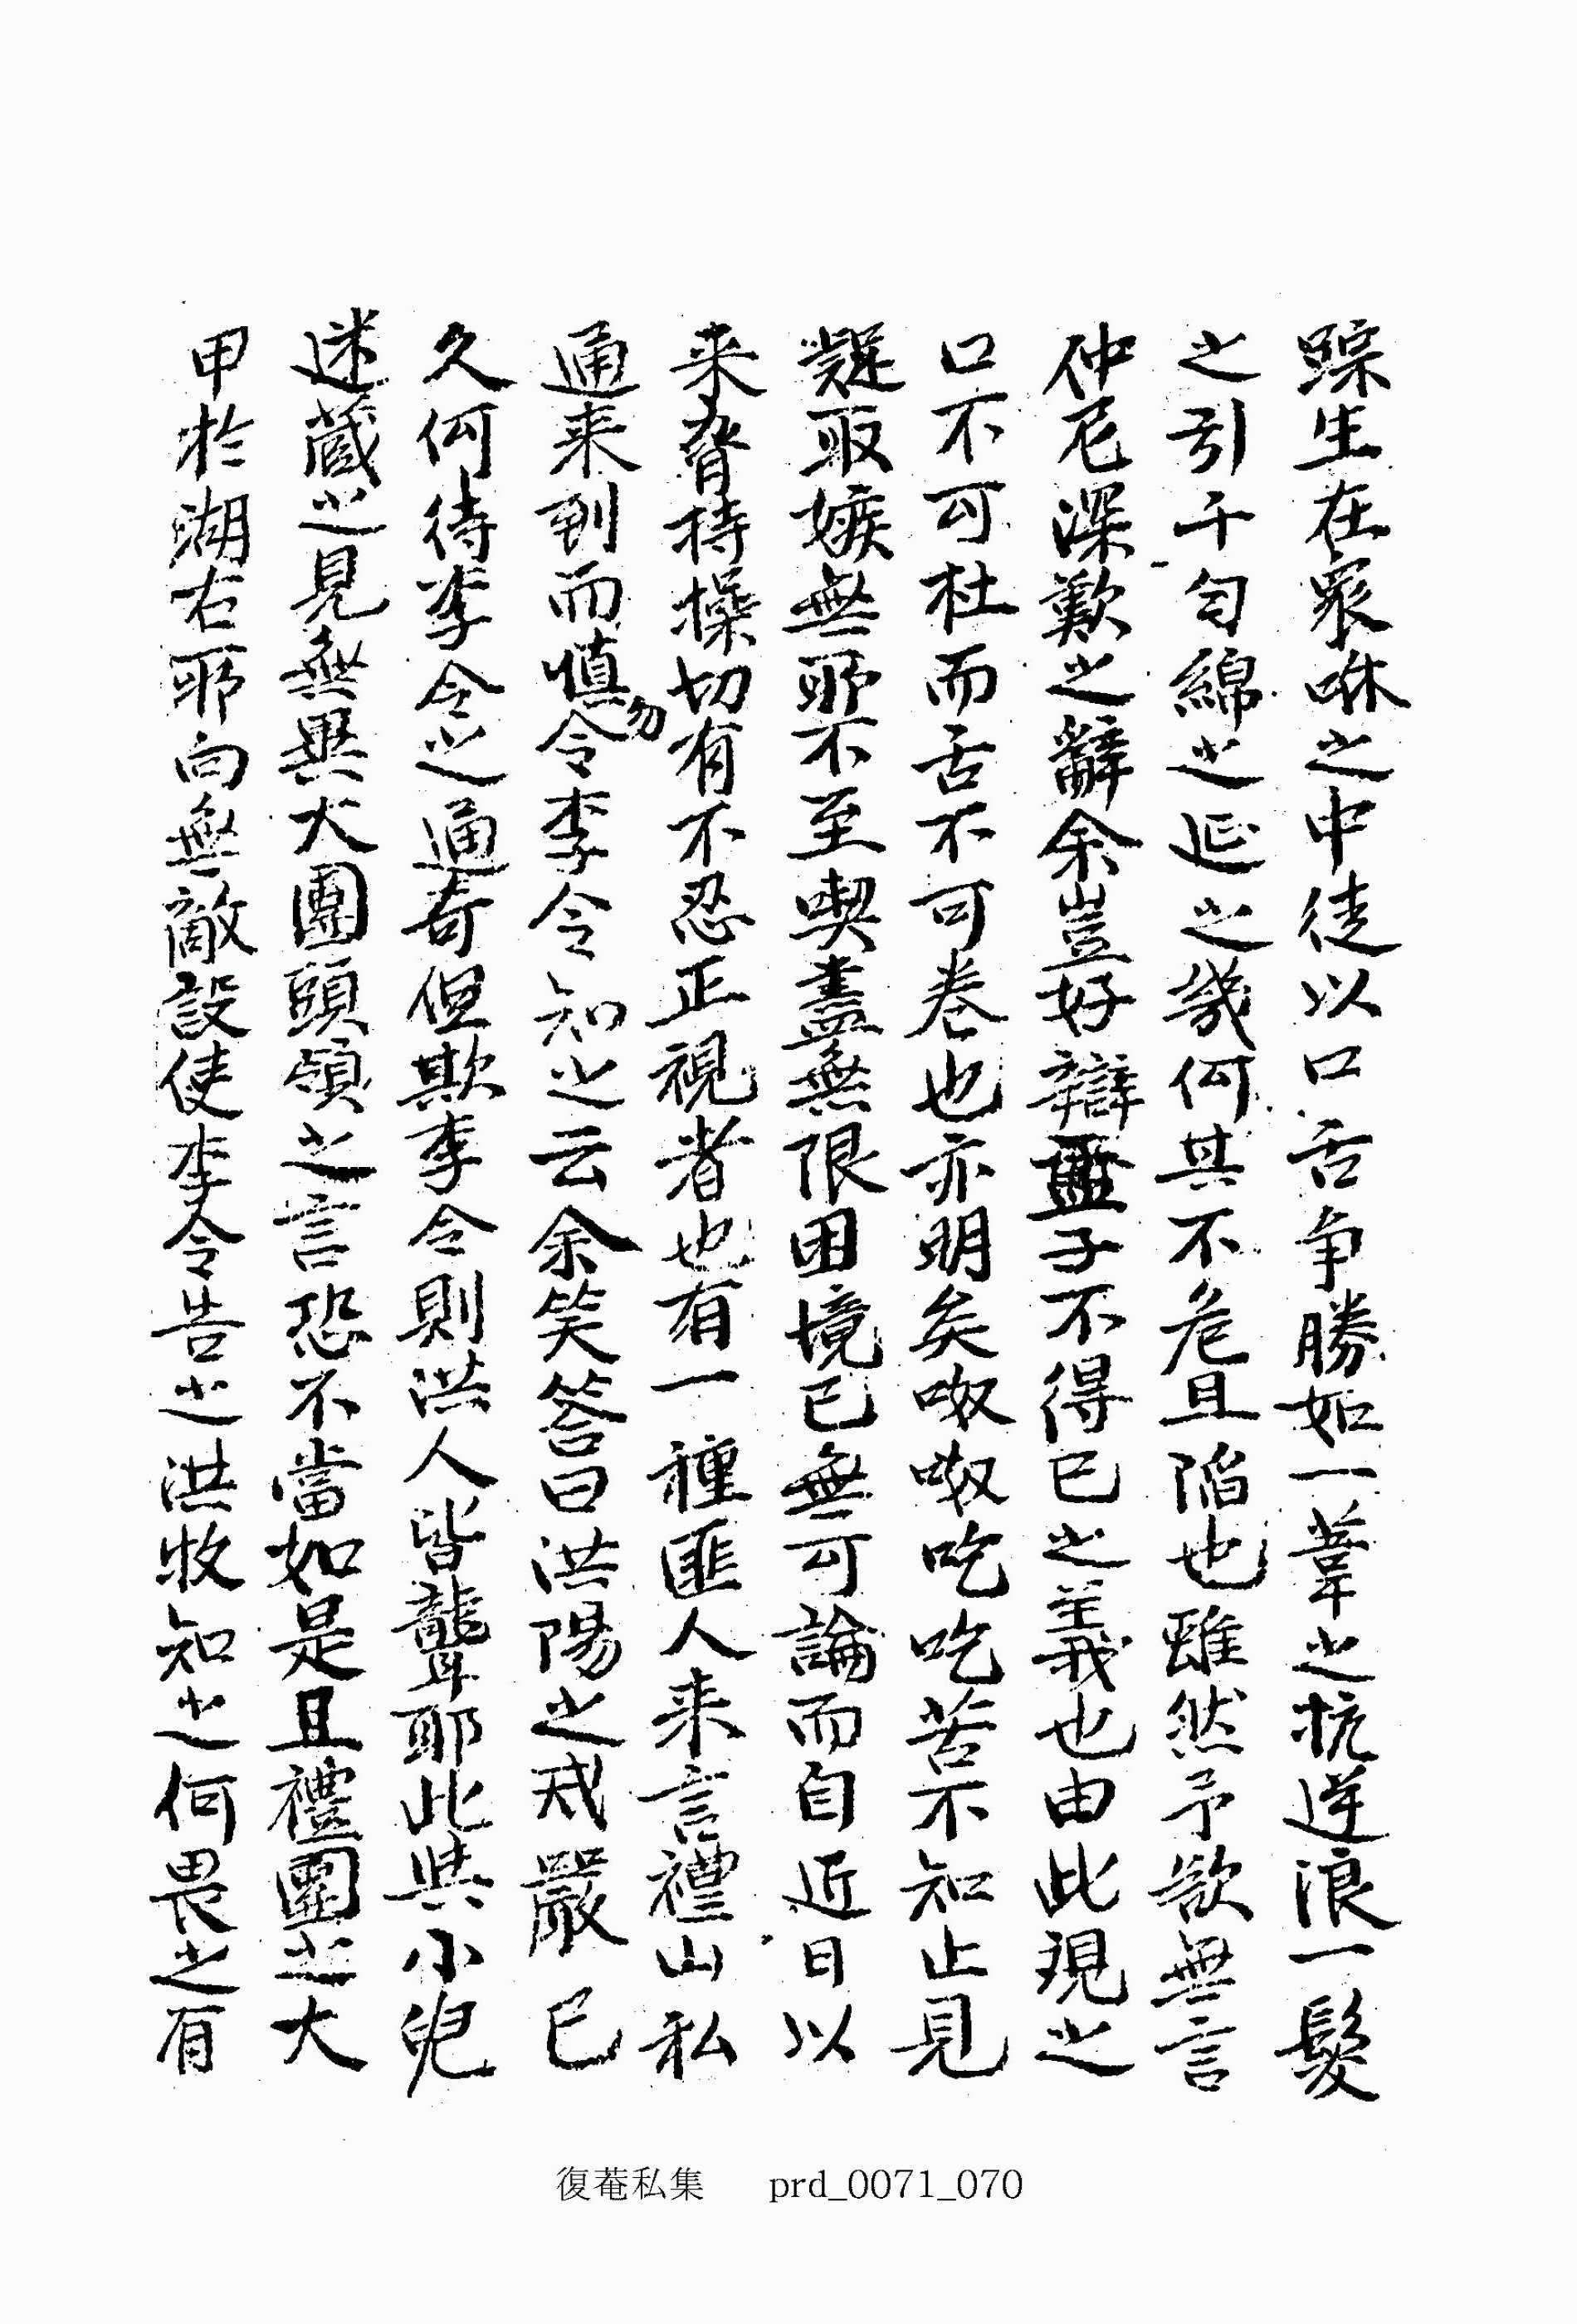 踪生在衆咻之中徒以口舌争勝如一葦之抗逆浪一髮
之引千匀綿之延之幾何其不危且陷也雖然予欲無言
仲尼深歎之辭余豈好辯孟子不得已之義也由此現之
口不可杜而舌不可卷也亦明矣呶呶吃吃苦不知止見
疑取嫉無耶不至喫盡無限困境已無可論而自近日以
来脅持操切有不忍正視者也有一種匪人来言禮山私
通来到而慎勿令李令知之云余笑答曰洪陽之戒嚴已
久何待李令之通奇但欺李令則洪人皆聾耶此與小兒
迷藏之見無異大團頭領之言恐不當如是且禮團之大
甲於湖右耶向無敵設使李令告之洪牧知之何畏之有
復菴私集 prd_0071_070